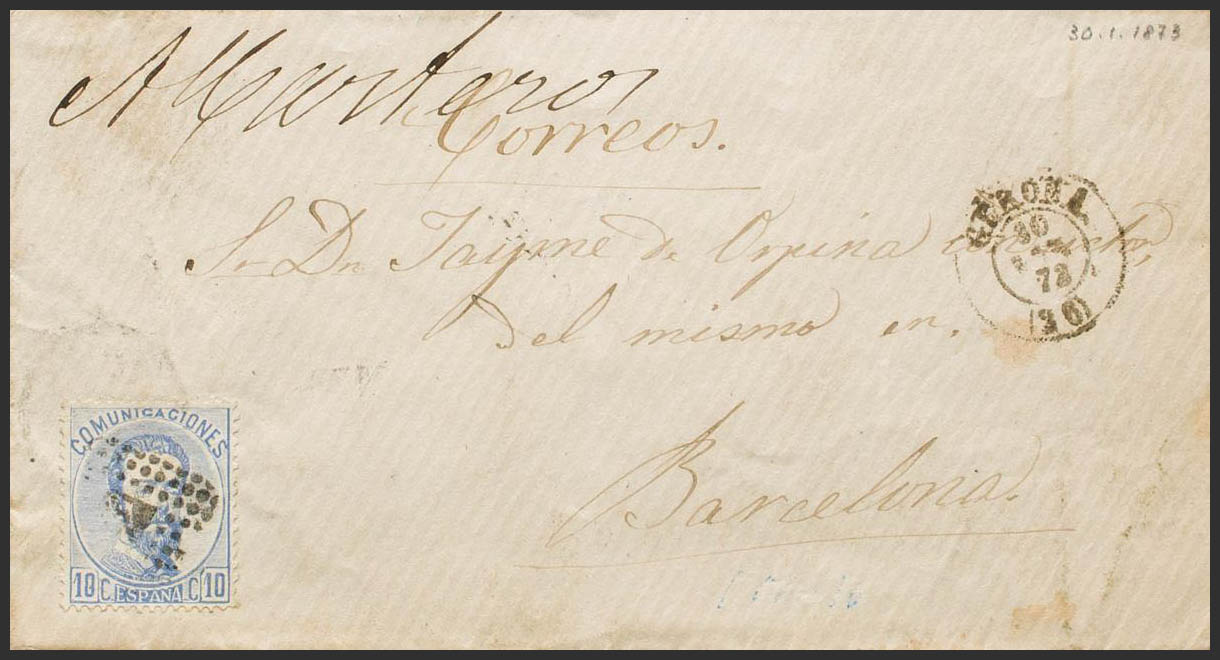 30.1.1873
A Montero
Correos.
GERONA
30
73
(20)
Sr Dn Jayme de Ospina conductor,
del mismo en.
Barcelona.
COMUNICACIONES
10 C. ESPAÑA C. 10